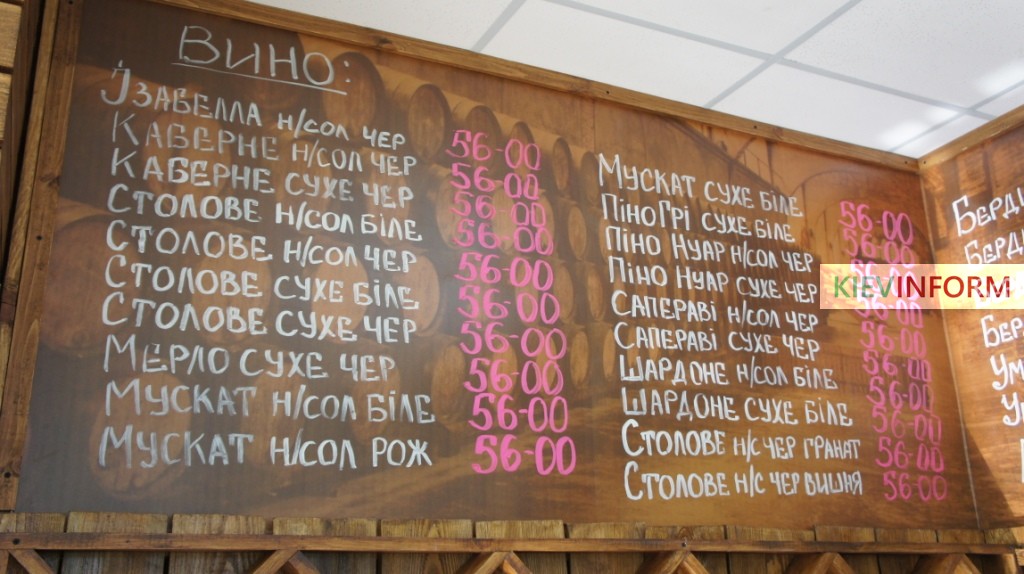 ВИНО:
Ізабелла н/сол чер 56-00
Каберне н/сол чер 56-00
Каберне сухе чер 56-00
Столове н/сол біле 56-00
Столове н/сол чер 56-00
Столове сухе біле 56-00
Столове сухе чер 56-00
Мерло сухе чер 56-00
Мускат н/сол біле 56-00
Мускат н/сол рож 56-00
Мускат сухе біле 56-00
Піно Грі сухе біле 56-00
Піно Нуар н/сол чер 56-00
Піно Нуар сухе чер 56-00
Сапераві н/сол чер 56-00
Сапераві сухе чер 56-00
Шардоне н/сол біле 56-00
Шардоне сухе біле 56-00
Столове н/с чер гранат 56-00
Столове н/с чер вишня 56-00
KIEVINFORM